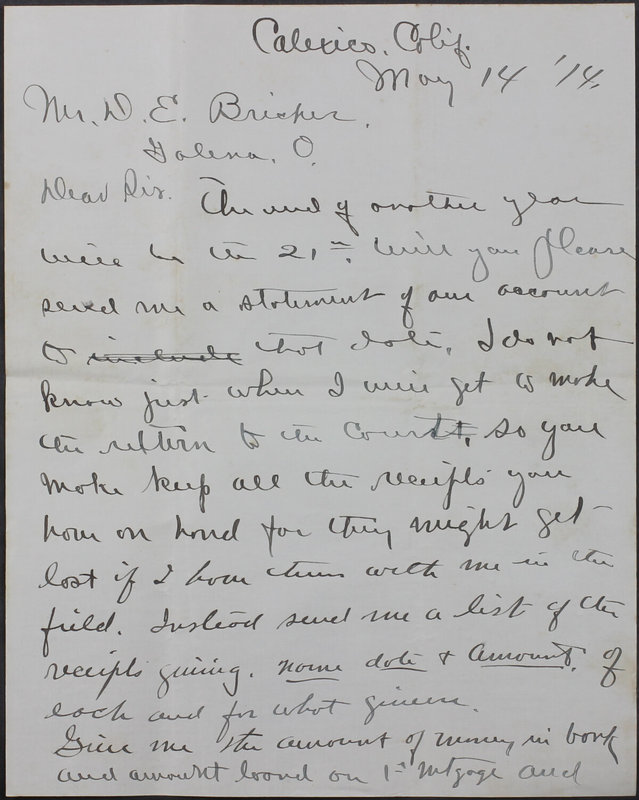 Calexico, Calif.
May 14 '14.
Mr. D. E. Bricker,
Galena, O.
Dear Sir. The end of another year
will be the 21st. Will you please
send me a statement of our account
to include that date, I do not
know just when I will get to make
the return to the Court, so you
make keep all the receipts you
have on hand for they might get
lost if I have them with me in the
field. Instead send me a list of the
receipts giving, name date & amount, of
each and for what given.
Give me the amount of money in bank
and amount loand on 1st mtgage and